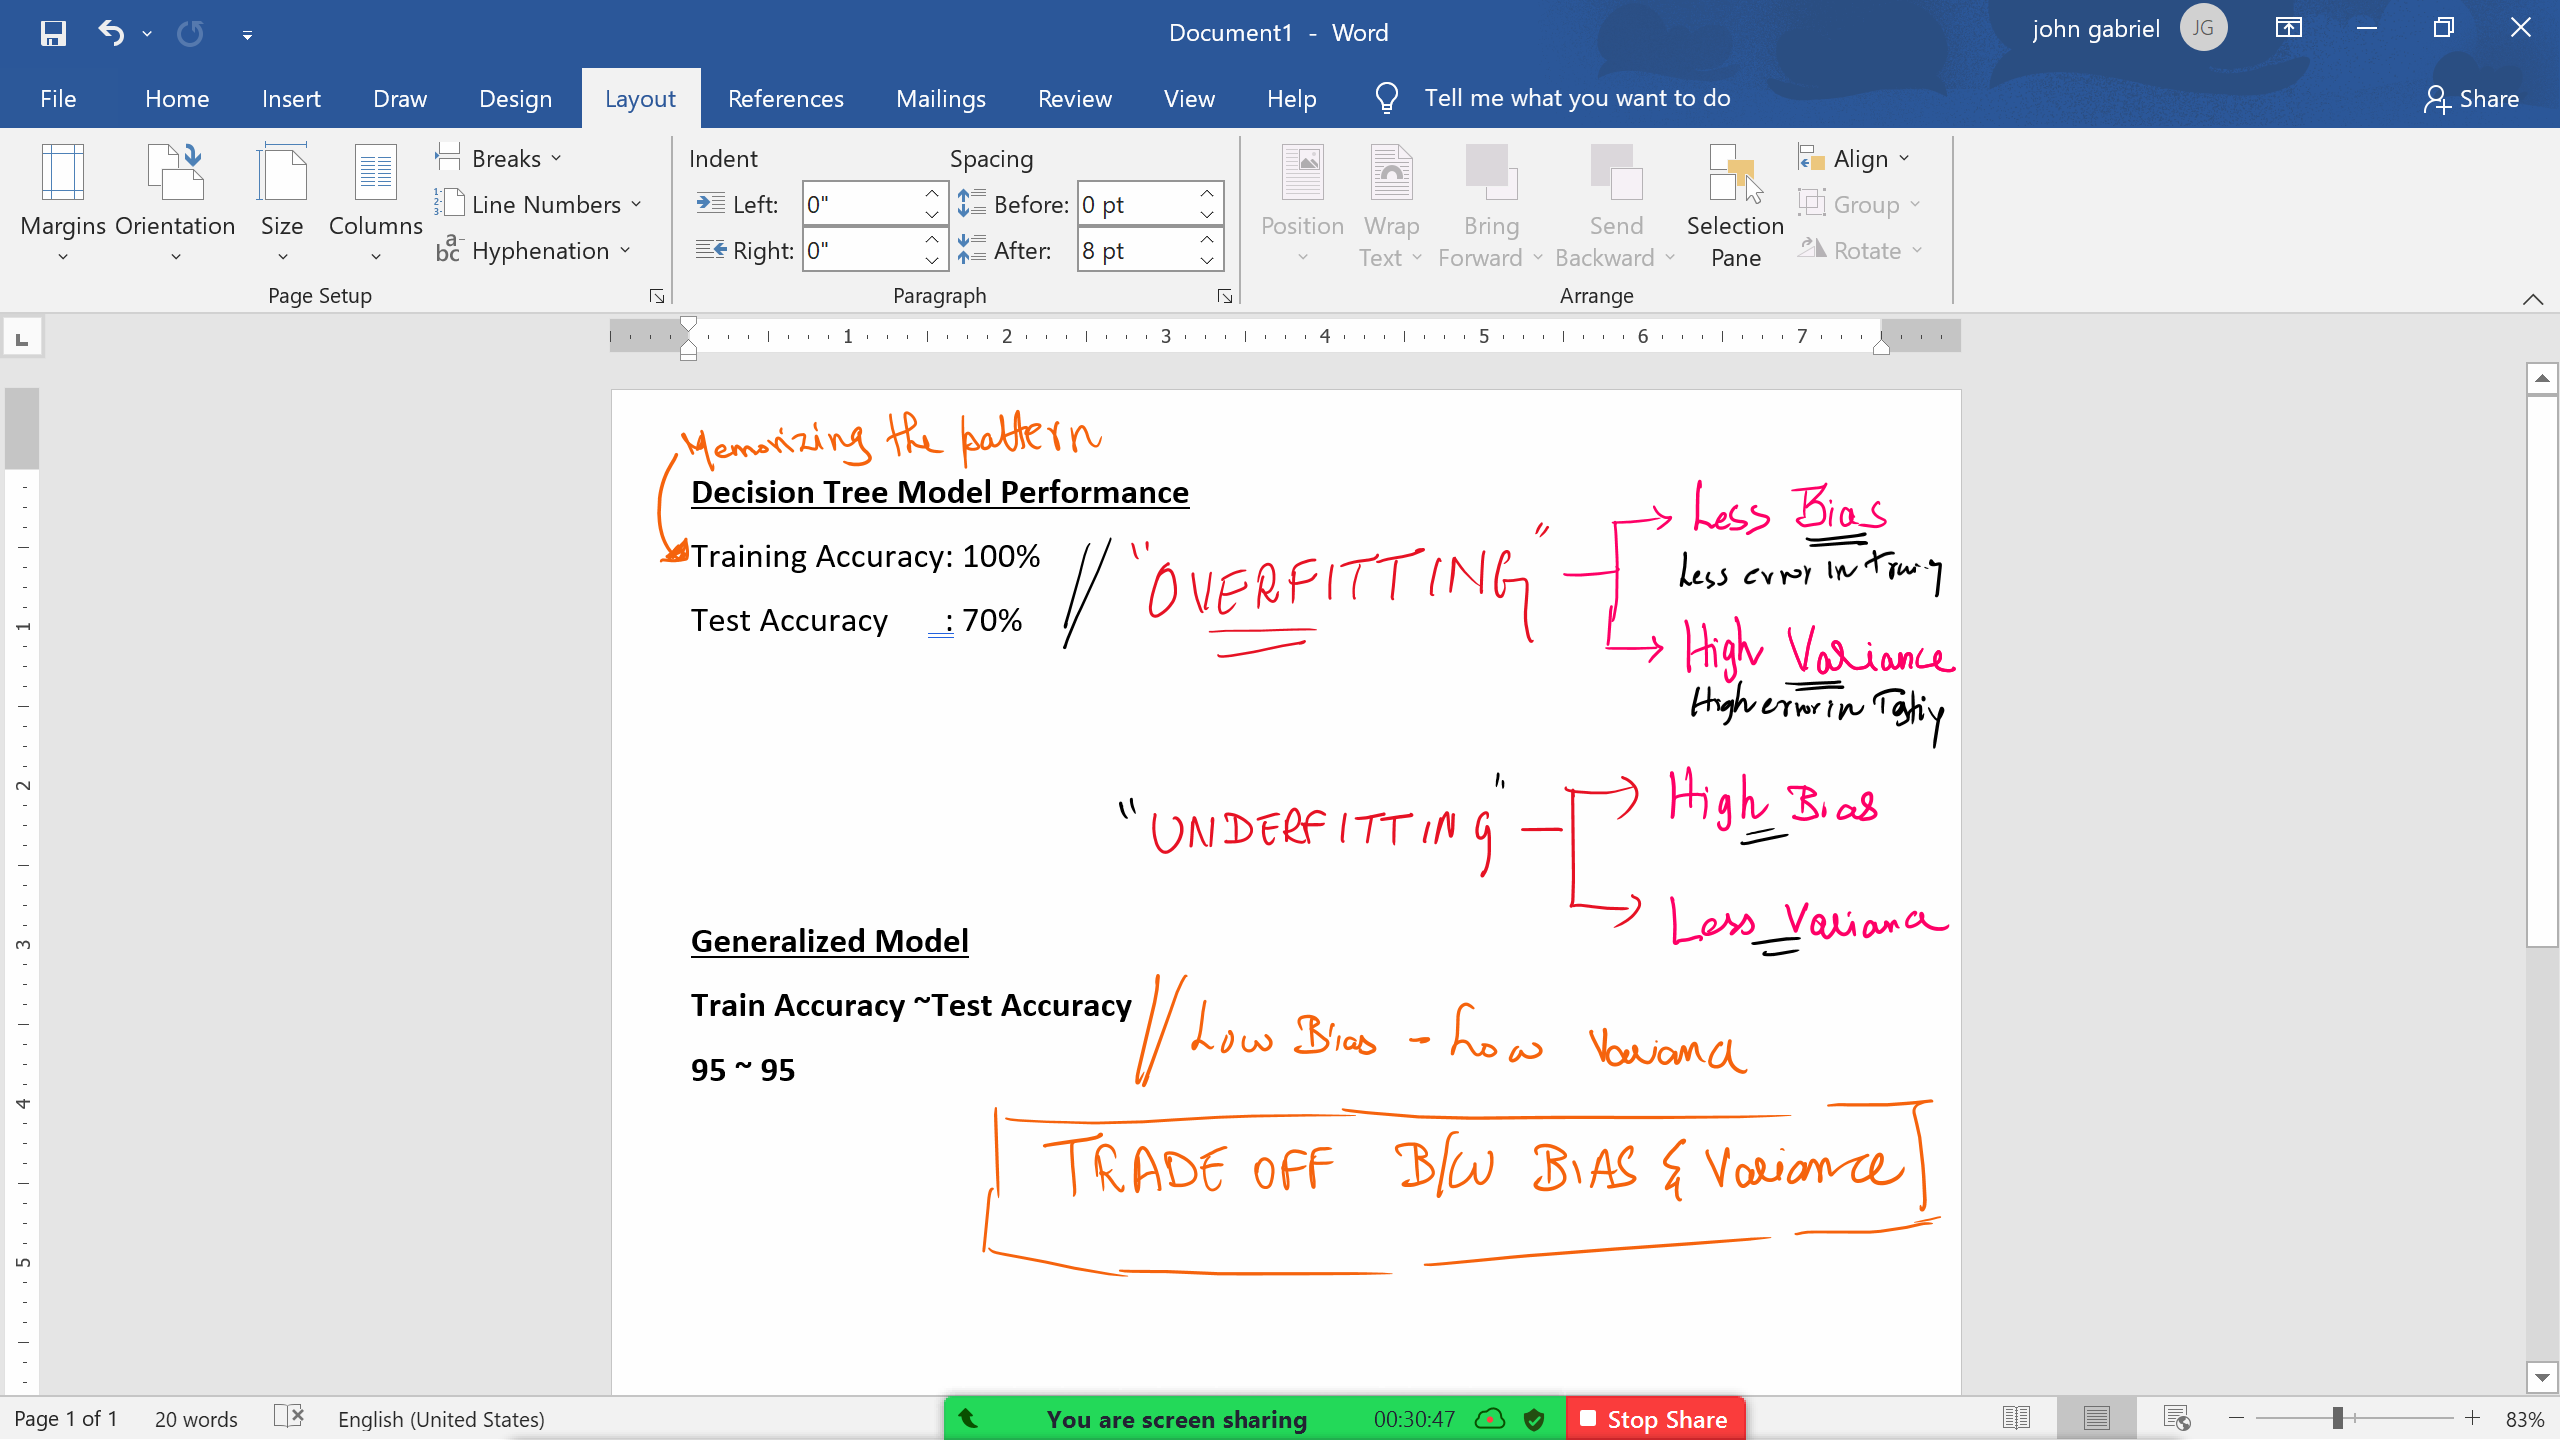 Document1 - Word
john gabriel JG
File Home Insert Draw Design Layout References Mailings Review View Help Tell me what you want to do Share
Margins Orientation Size Columns Breaks Line Numbers Hyphenation
Page Setup
Indent Spacing
Left: 0" Before: 0 pt
Right: 0" After: 8 pt
Paragraph
Position Wrap Text Bring Forward Send Backward Selection Pane Align Group Rotate
Arrange
1 2 3 4 5 6 7
Memorizing the pattern
Decision Tree Model Performance
Training Accuracy: 100%
Test Accuracy : 70%
"OVERFITTING"
Less Bias
Less error in
High Variance
High error in
"UNDERFITTING"
High Bias
Less Variance
Generalized Model
Train Accuracy ~Test Accuracy
95 ~ 95
Low Bias - Low Variance
TRADE OFF B/W BIAS & Variance
1
2
3
4
5
Page 1 of 1 20 words English (United States)
You are screen sharing 00:30:47 Stop Share
83%